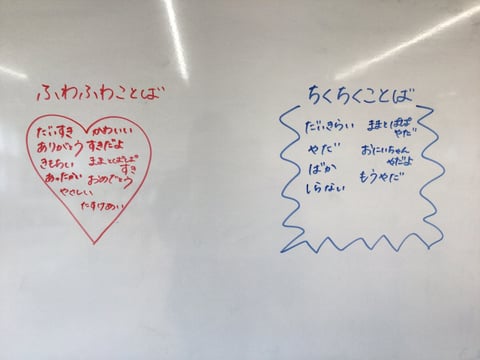 ふわふわことば
だいすき
ありがとう
きもちい
あったかい
やさしい
かわいい
すきだよ
ままとぱぱ
すき
おめでとう
たすけあい
ちくちくことば
だいきらい
やだ
ばか
しらない
ままとぱぱ
やだ
おにいちゃん
やだよ
もうやだ